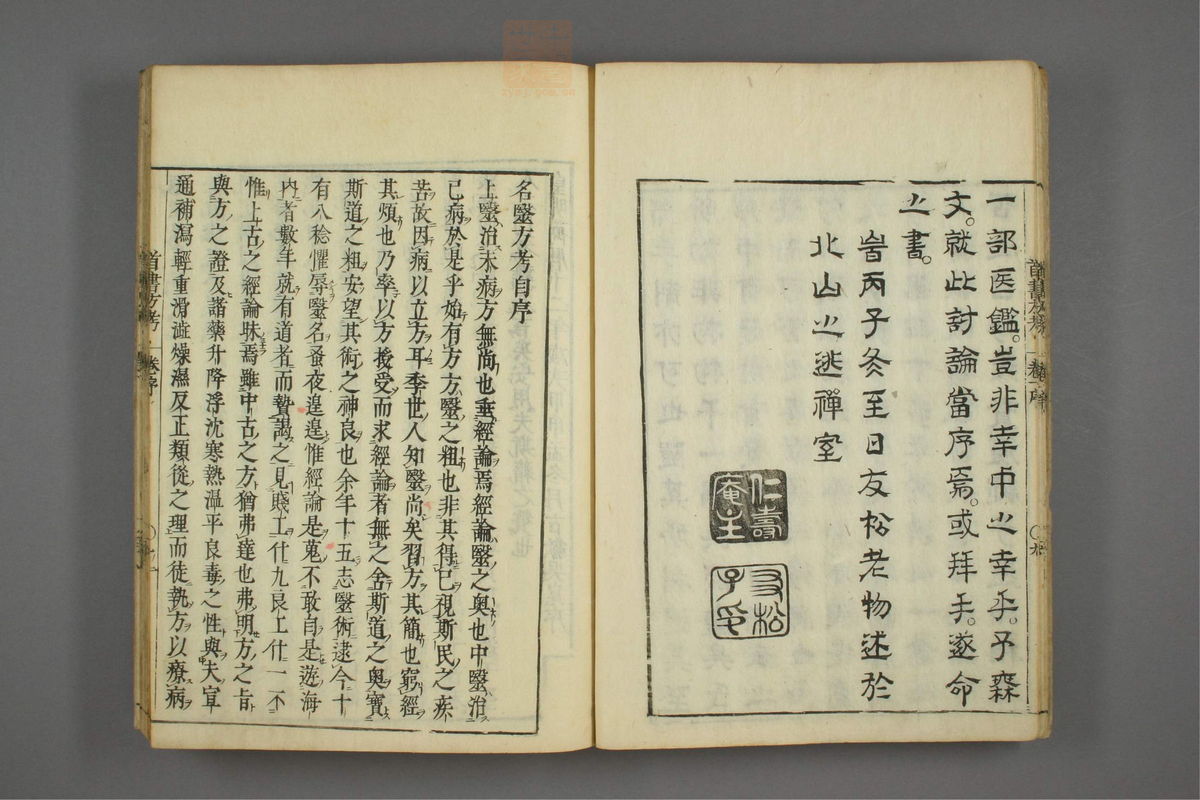 一部医鑑。豈非幸中之幸乎。予森
文。就此討論當序焉。或拜手。遂命
之書。
旹丙子冬至日友松老物述於
北山之逃禪室
仁壽
庵主
友松
子
名醫方考自序
上醫治未病方無尚也垂經論焉經論醫之奧也中醫治
已病於是乎始有方方醫之粗也非其得已視斯民之疾
苦故因病以立方耳季世人知醫尚矣習方其簡也窮經
其煩也乃率以方授受而求經論者無之舍斯道之奧寶
斯道之粗安望其術之神良也余年十五志醫術逮今十
有八稔懼辱醫名蚤夜遑遑惟經論是蒐不敢自是遊海
内者數年就有道者而贄謁之見賤工什九良工什一不
惟上古之經論昧焉雖中古之方猶弗達也弗明方之旨
與方之證及諳藥升降浮沈寒熱溫平良毒之性與夫宣
通補瀉輕重滑澁燥濕反正類從之理而徒執方以療病
首書方考
卷一序